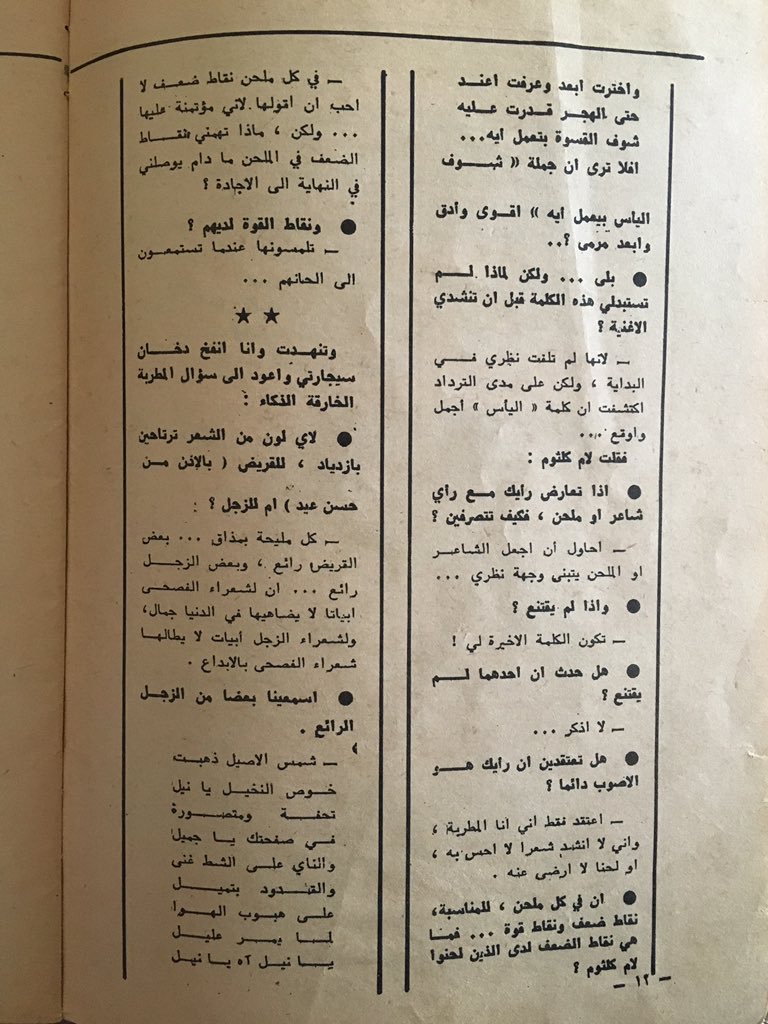 واخترت أبعد وعرفت أعند
حتى الهجر قدرت عليه
شوف القسوة بتعمل ايه...
أفلا ترى ان جملة « شوف
اليأس بيعمل أيه » أقوى وأدق
وابعد مرمى ؟..
● بلى ... ولكن لماذا لم
تستبدلي هذه الكلمة قبل ان تنشدي
الاغنية ؟
ـ لانها لم تلفت نظري في
البداية ، ولكن على مدى الترداد
اكتشفت ان كلمة « اليأس » أجمل
واوقع ...
فقلت لام كلثوم :
● اذا تعارض رأيك مع رأي
شاعر او ملحن ، فكيف تتصرفين ؟
ـ احاول أن اجعل الشاعر
او الملحن يتبنى وجهة نظري ...
● واذا لم يقتنع ؟
ـ تكون الكلمة الاخيرة لي !
● هل حدث ان احدهما لم
يقتنع ؟
ـ لا اذكر ...
● هل تعتقدين ان رأيك هو
الاصوب دائما ؟
ـ اعتقد فقط اني أنا المطربة ،
واني لا انشد شعرا لا احس به ،
او لحنا لا ارضى عنه .
● ان في كل ملحن ، للمناسبة،
نقاط ضعف ونقاط قوة ... فما
هي نقاط الضعف لدى الذين لحنوا
لام كلثوم ؟
ـ في كل ملحن نقاط ضعف لا
احب ان اقولها لاني مؤتمنة عليها
... ولكن ، ماذا تهمني نقاط
الضعف في الملحن ما دام يوصلني
في النهاية الى الاجادة ؟
● ونقاط القوة لديهم ؟
ـ تلمسونها عندما تستمعون
الى الحانهم ...
★ ★
وتنهدت وانا انفخ دخان
سيجارتي واعود الى سؤال المطربة
الخارقة الذكاء :
● لاي لون من الشعر ترتاحين
بازدياد ، للقريض ( بالإذن من
حسن عيد ) ام للزجل ؟
ـ كل مليحة بمذاق ... بعض
القريض رائع ، وبعض الزجل
رائع ... ان لشعراء الفصحى
ابياتا لا يضاهيها في الدنيا جمال،
ولشعراء الزجل أبيات لا يطالها
شعراء الفصحى بالابداع .
● اسمعينا بعضا من الزجل
الرائع .
ـ شمس الاصيل ذهبت
خوص النخيل يا نيل
تحفة ومتصورة
في صفحتك يا جميل
والناي على الشط غنى
والقدود بتميل
على هبوب الهوا
لما يمر عليل
يا نيل آه يا نيل
ـ ١٢ ـ